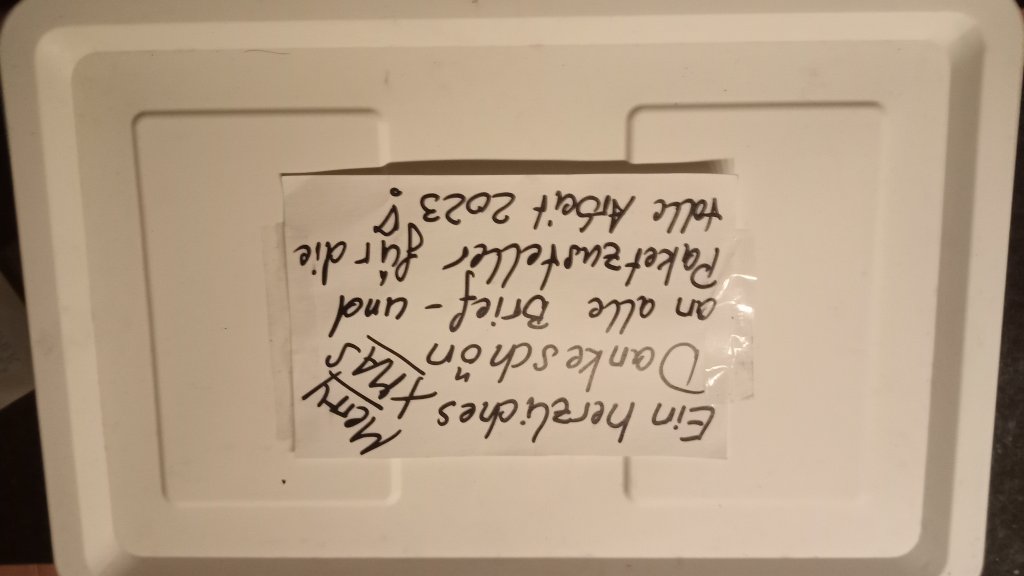 Ein herzliches
Dankeschön
an alle Brief- und
Paketzusteller für die
tolle Arbeit 2023!
Merry
XMAS